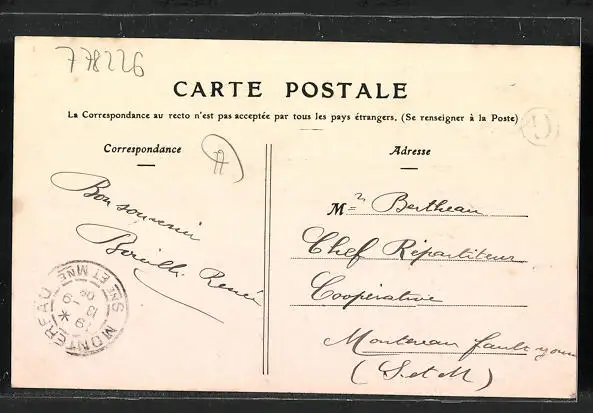 778226
CARTE POSTALE
La Correspondance au recto n'est pas acceptée par tous les pays étrangers. (Se renseigner à la Poste)
Correspondance
A
Adresse
Bon souvenir
René
Mr Bertheau
Chef Répartiteur
Coopérative
Montereau fault yonne
(S. et M)
MONTEREAU
SNE ET MNE